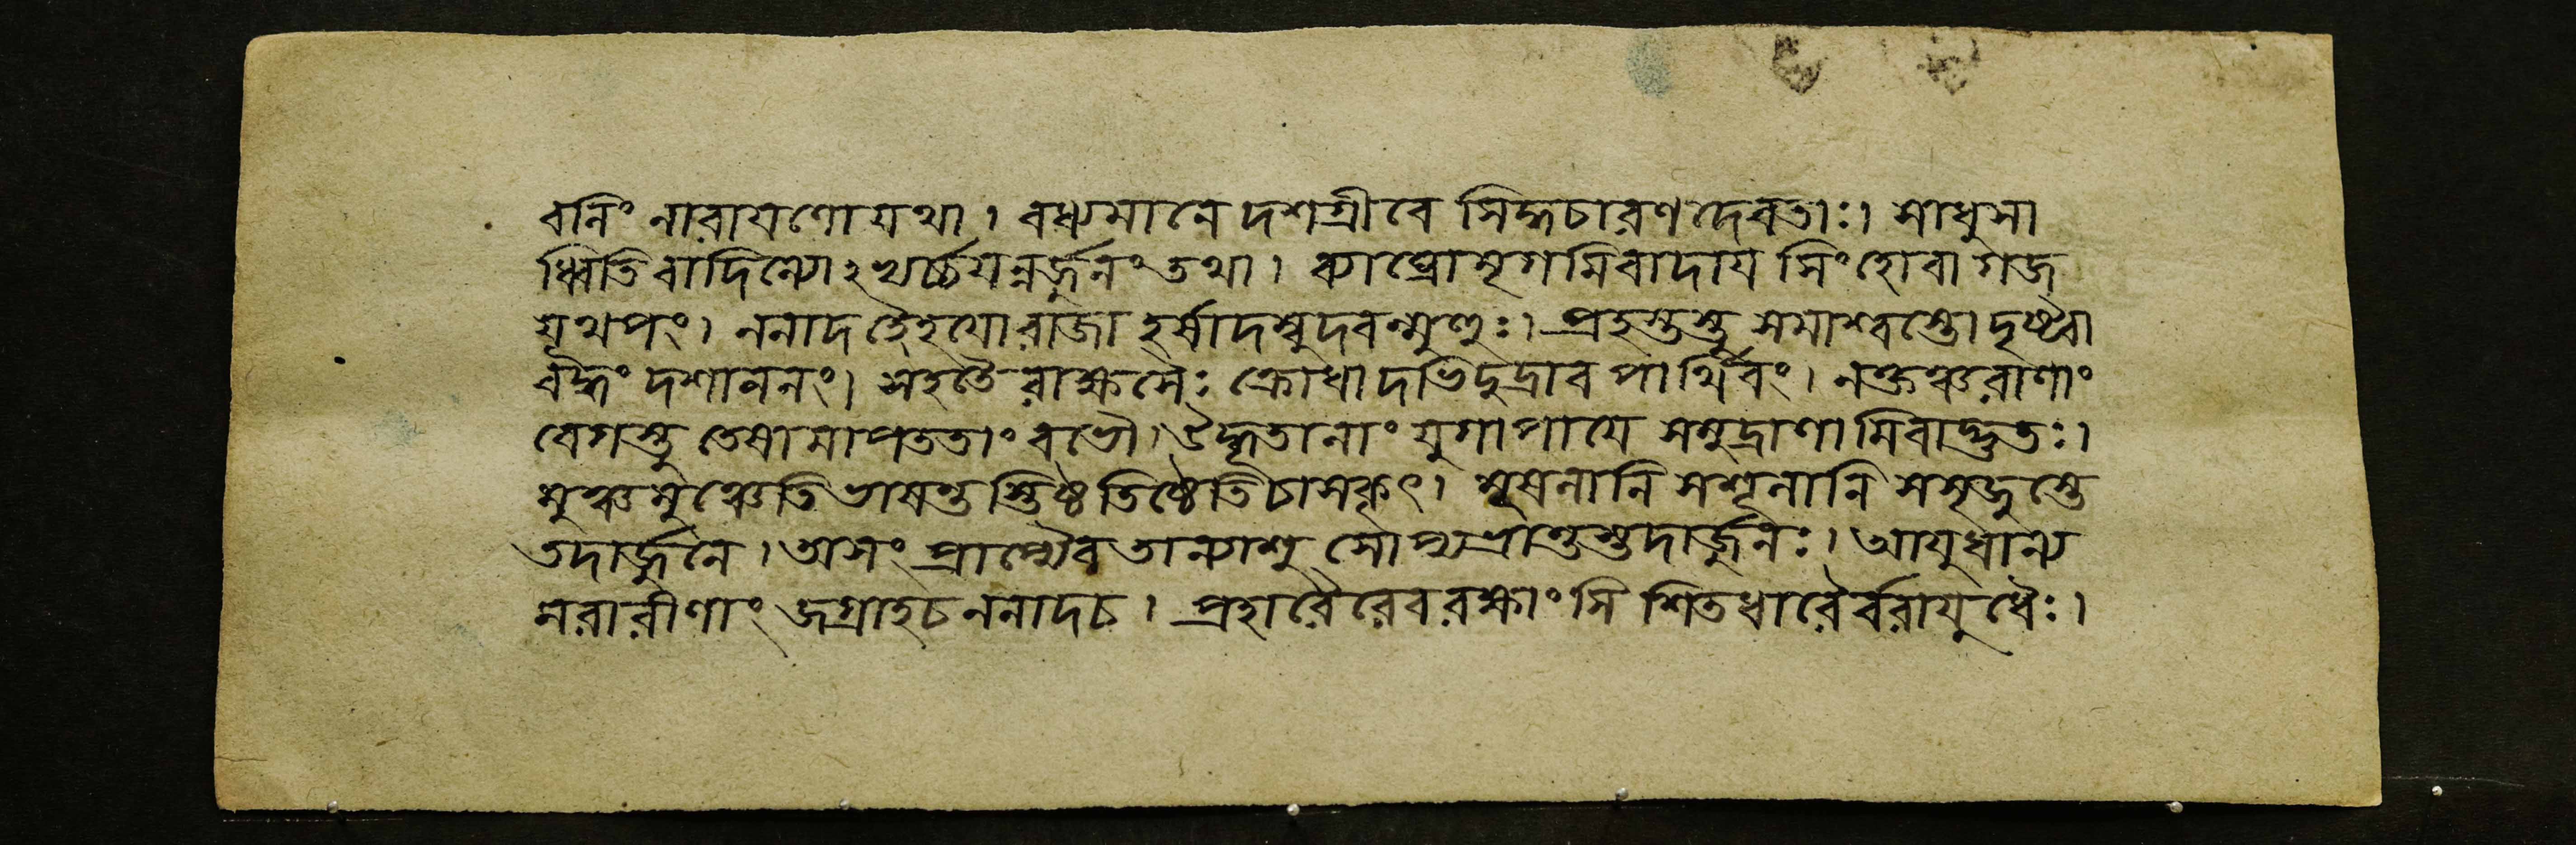 বলিং নারাযণো যথা। বধ্যমানে দশগ্রীবে সিদ্ধচারণদেবতাঃ। সাধুসা
ধ্বিতি বাদিন্যোঽথার্চ্চযন্নর্জ্জুনং তথা। ব্যাঘ্রো মৃগমিবাদায সিংহো বা গজ
যূথপং। ননাদ হৈহযো রাজা হর্ষাদম্বুদবন্মুহুঃ। প্রহস্তস্তু সমাশ্বস্তো দৃষ্ট্বা
বদ্ধং দশাননং। সহ তৈ রাক্ষসৈঃ ক্রোধাদভিদুদ্রাব পার্থিবং। নক্তঞ্চরাণাং
বেগস্তু তেষামাপততাং বভৌ। উদ্ধৃতানাং যুগাপাযে সমুদ্রাণামিবাদ্ভুতঃ।
মুঞ্চ মুঞ্চেতি ভাষন্তস্তিষ্ঠ তিষ্ঠেতি চাসকৃৎ। মূষলানি সশূলানি সসৃজুস্তে
তদার্জ্জুনে। অসংপ্রাপ্যৈব তান্যাশু সোপ্যভ্রান্তস্তদার্জ্জুনঃ। আযুধান্য
মরারীণাং জগ্রাহ চ ননাদ চ। প্রহারৈরেব রক্ষাংসি শিতধারৈর্বরাযুধৈঃ।